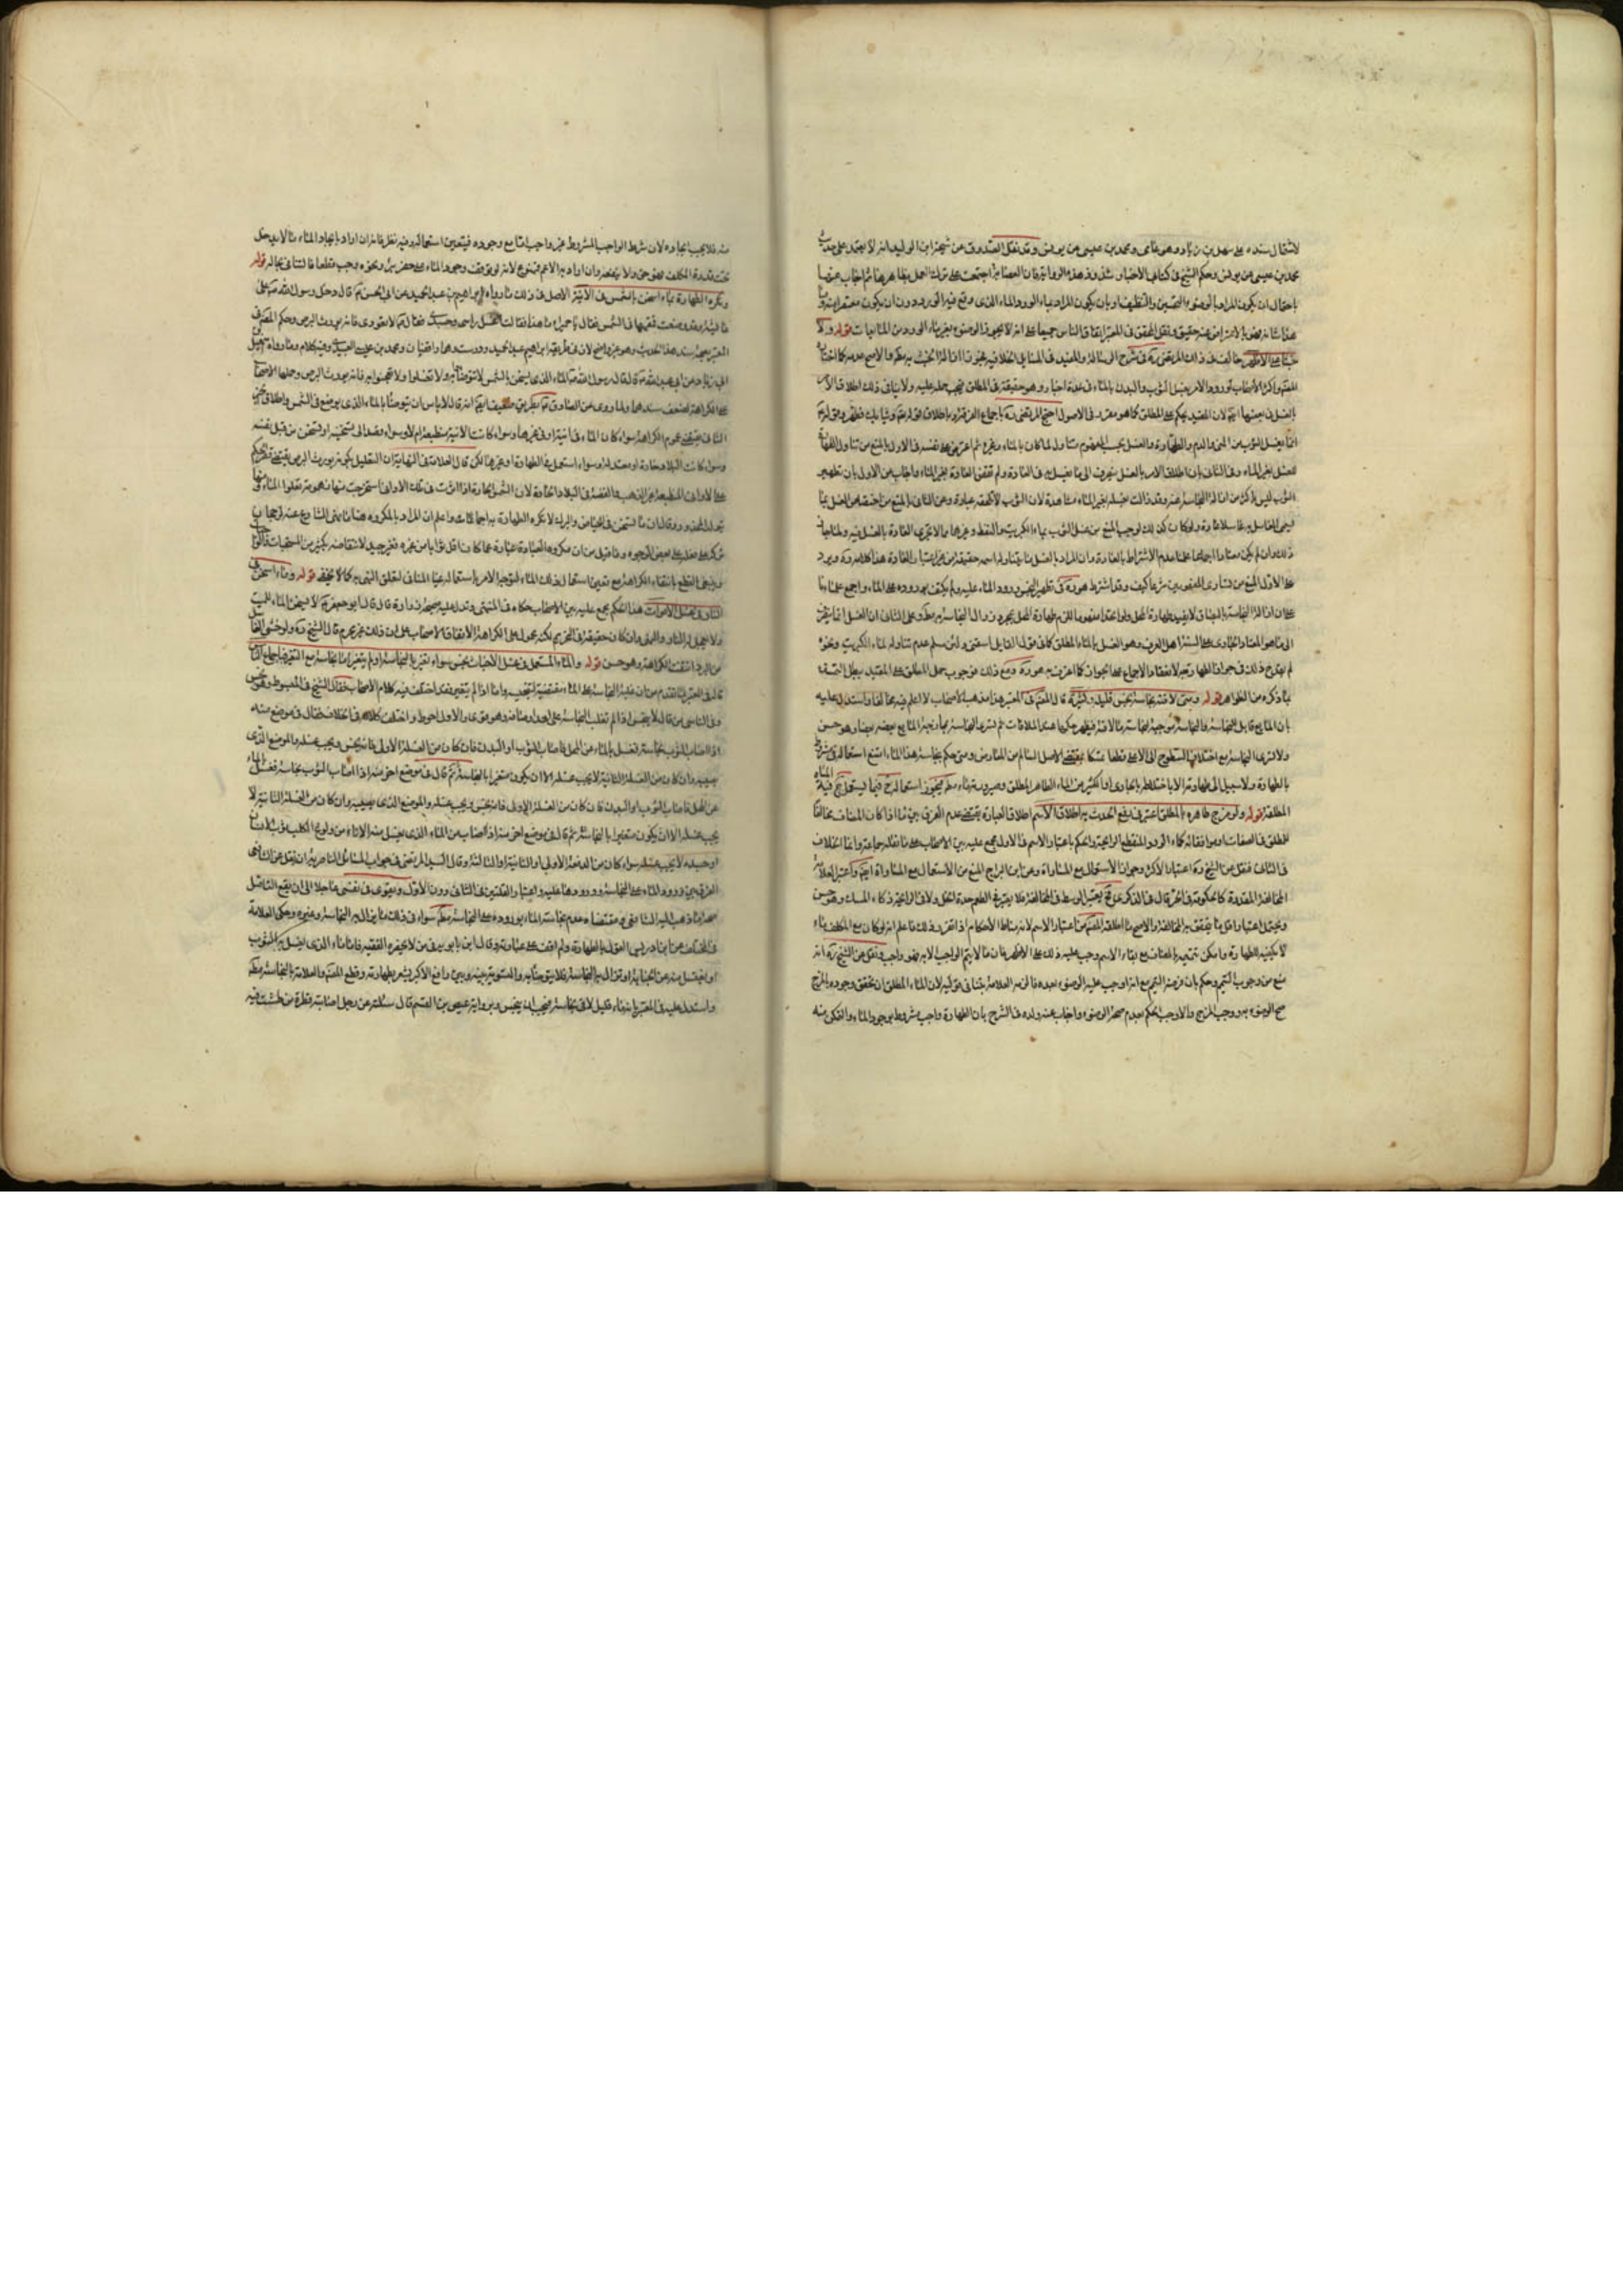 لاشتمال سنده على سهل بن زياد وهو عامى ومحمد بن عيسى عن يونس وقد نقل الصدوق عن شيخه ابن الوليد انه لا يعتمد على حديث
محمد بن عيسى عن يونس وحكم الشيخ فى كتابى الاخبار بشذوذ هذه الرواية وان العصابة اجمعت على ترك العمل بظاهرها ثم اجاب عنها
باحتمال ان يكون المراد بالوضوء التحسين والتنظيف او بان يكون المراد بماء الورد الماء الذى وقع فيه الورد دون ان يكون معتصرا منه
هذا شانه فهو بالاعراض عنه حقيق ونقل المحقق فى المعتبر اتفاق الناس جميعا على انه لا يجوز الوضوء بغير ماء الورد من المائعات قوله ولا
خبثا على الاظهر خالف فى ذلك المرتضى ره فى شرح الرسالة والمفيد فى المسايل الخلافية فجوزا ازالة الخبث به مطلقا والاصح عدمه كما اختاره
المصنف واكثر الاصحاب لورود الامر بغسل الثوب والبدن بالماء فى عدة اخبار وهو حقيقة فى المطلق فيجب حمله عليه ولا ينافى ذلك اطلاق الامر
بالغسل فى بعضها ايضا لان المقيد يحكم على المطلق كما هو مقرر فى الاصول احتج المرتضى ره باجماع الفرقة وباطلاق قوله تعالى وثيابك فطهر وبقوله
انما يغسل الثوب من المنى والدم والطهارة والغسل بحسب المفهوم متناول لما كان بالماء وغيره ثم اعترض على نفسه فى الاول بالمنع من تناول الطهارة
للغسل بغير الماء وفى الثانى بان اطلاق الامر بالغسل ينصرف الى ما يغسل به فى العادة ولم تقض العادة بغير الماء واجاب عن الاول بان تطهير
الثوب ليس باكثر من ازالة النجاسة عنه وقد زالت بغسله بغير الماء مشاهدة لان الثوب لا تلحقه عبادة وعن الثانى بالمنع من اختصاص الغسل بما
يسمى الغاسل به غاسلا عادة ولو كان كذلك لوجب المنع من غسل الثوب بماء الكبريت والنفط وغيرهما مما لا تجرى العادة بالغسل فيه ولما جاز
ذلك وان لم يكن معتادا اجماعا علمنا عدم الاشتراط بالعادة وان المراد بالغسل ما يتناوله اسمه حقيقة من غير اعتبار العادة هذا كلامه ره ويرد
على الاول المنع من تساوى
الى ما هو المعتاد الجارى على السنة اهل العرف وهو الغسل بالماء المطلق كما فى قول القايل اسقنى ولئن سلم عدم تناوله لماء الكبريت ونحوه
لم يقدح ذلك فى جواز الطهارة به لانعقاد الاجماع على الجواز كما اعترف به هو ره ومع ذلك فوجوب حمل المطلق على المقيد يبطل التمسك
بما ذكره من الظواهر قوله ومتى لاقته نجاسة نجس قليله وكثيره قال المصنف فى المعتبر هذا مذهب الاصحاب لا اعلم فيه مخالفا واستدل عليه
بان المايع قابل للنجاسة والنجاسة موجبة لنجاسة ما لاقته فيظهر حكمها عند الملاقاة ثم تسرى النجاسة بممازجة المايع بعضه بعضا وهو حسن
ولا تسرى النجاسة مع اختلاف السطوح الى الاعلى قطعا تمسكا بمقتضى الاصل السالم من المعارض ومتى حكم بنجاسة هذا الماء امتنع استعماله فى مشروط
بالطهارة ولا سبيل الى طهارته الا باختلاطه بالجارى او الكثير من الماء الطاهر المطلق وصيرورته ماء مطلقا فيجوز استعماله ح فيما يستعمل فيه المياه
المطلقة قوله ولو مزج طاهره بالمطلق اعتبر فى رفع الحدث به اطلاق الاسم اطلاق العبارة يقتضى عدم الفرق بين ما اذا كان المضاف مخالفا
للمطلق فى الصفات او موافقا له كماء الورد المنقطع الرايحة والحكم باعتبار الاسم فى الاول مجمع عليه بين الاصحاب على ما نقله جماعة وانما الخلاف
فى الثانى فنقل عن الشيخ ره اعتبار الاكثر وجواز الاستعمال مع المساواة وعن ابن البراج المنع من الاستعمال مع المساواة ايضا واعتبر العلامة
المخالفة المقدرة كالحكومة فى الحر
ويحتمل اعتبار اقل ما يتحقق به المخالفة والاصح ما اطلقه المصنف من اعتبار الاسم لانه مناط الاحكام اذا تقرر ذلك فاعلم انه لو كان مع المكلف ماء
لا يكفيه للطهارة وامكن تتميمه بالمضاف مع بقاء الاسم وجب عليه ذلك على الاظهر فان ما لا يتم الواجب الا به فهو واجب ونقل عن الشيخ ره انه
منع من وجوب التتميم وحكم بان فرضه التيمم مع انه اوجب عليه الوضوء بعده فالزمه العلامة بتنافى قوليه لان الماء المطلق ان تحقق وجوده بالمزج
صح الوضوء به ووجب المزج والا وجب الحكم بعدم صحة الوضوء واجاب عنه ولده فى الشرح بان الطهارة واجب مشروط بوجود الماء والتمكن منه
فلا يجب ايجاده لان شرط الواجب المشروط غير واجب اما مع وجوده فيتعين استعماله وفيه نظر فانه ان اراد بايجاد الماء ما لا يدخل
تحت قدرة المكلف فهو حق ولا ينفعه وان اراد به الاعم فممنوع لانه لو توقف وجود الماء على حفر بئر ونحوه وجب قطعا فالتنافى بحاله قوله
وتكره الطهارة بماء اسخن بالشمس فى الآنية الاصل فى ذلك ما رواه ابراهيم بن عبد الحميد عن ابى الحسن ع قال دخل رسول الله ص على
عايشة وقد وضعت قمقمها فى الشمس فقال يا حميراء ما هذا فقالت اغسل راسى وجسدى فقال ص لا تعودى فانه يورث البرص وحكم المصنف فى
المعتبر بصحة سند هذا الحديث وهو غير واضح لان فى طريقه ابراهيم بن عبد الحميد ودرست وهما واقفيان ومحمد بن عيسى العبيدى وفيه كلام وما رواه اسمعيل
ابن ابى زياد عن ابى عبد الله ع قال قال رسول الله ص الماء الذى يسخن بالشمس لا تتوضأوا به ولا تغتسلوا ولا تعجنوا به فانه يورث البرص وحملها الاصحاب
على الكراهة لضعف سندهما ولما روى عن الصادق ع بطريق ضعيف ايضا انه قال لا باس ان يتوضأ بالماء الذى يوضع فى الشمس واطلاق
يقتضى عموم الكراهة سواء كان الماء فى آنية او فى غيرها وسواء كانت الانية منطبعة ام لا وسواء قصد الى تسخينه او تسخن من قبل نفسه
وسواء كانت البلاد حارة او معتدلة وسواء استعمل فى الطهارة او غيرها لكن قال العلامة فى النهاية ان التعليل بكونه يورث البرص يقتضى قصر الحكم
على الاوانى المنطبعة غير الذهب والفضة فى البلاد الحارة لان الشمس الحارة اذا اثرت فى تلك الاوانى استخرجت منها زهومة تعلو الماء ومنها
يتولد المحذور وقال ان ما تسخن فى الحياض والبرك لا تكره الطهارة به اجماعا واعلم ان المراد بالمكروه هنا ما نهى الشارع عنه لرجحان
تركه على فعله على بعض الوجوه وما قيل من ان مكروه العبادة عبارة عما كان اقل ثوابا من غيره فغير جيد لانتقاضه بكثير من المستحبات
وينبغى القطع بانتفاء الكراهة مع تعين استعمال ذلك الماء لتوجه الامر باستعماله عينا المنافى لتعلق النهى به كما لا يخفى قوله وماء اسخن
بالنار فى غسل الاموات هذا الحكم مجمع عليه بين الاصحاب حكاه فى المنتهى وتدل عليه صحيحة زرارة قال قال ابو جعفر ع لا يسخن الماء للميت
ولا يعجل له النار والنهى وان كان حقيقة فى التحريم لكنه محمول على الكراهة لاتفاق الاصحاب على ان ذلك غير محرم قال الشيخ ره ولو خشى الغاسل
من البرد انتفت الكراهة وهو حسن قوله والماء المستعمل فى غسل الاخباث نجس سواء تغير بالنجاسة او لم يتغير اما نجاسته مع التغير فباجماع الناس
قاله فى المعتبر
وفى الناس من قال لا ينجس اذا لم تغلب النجاسة على احد اوصافه وهو قوى والاول احوط واختلف كلامه فى الخلاف فقال فى موضع منه
اذا اصاب الثوب نجاسة فغسل بالماء فانفصل الماء عن المحل فاصاب الثوب او البدن فان كان من الغسلة الاولى فانه نجس ويجب غسله والموضع الذى
يصيبه وان كان من الغسلة الثانية لا يجب غسله الا ان يكون متغيرا بالنجاسة ثم قال فى موضع آخر منه اذا اصاب الثوب نجاسة فغسل بالماء
عن المحل فاصاب الثوب او البدن فان كان من الغسلة الاولى فانه نجس ويجب غسله والموضع الذى يصيبه وان كان من الغسلة الثانية لا
يجب غسله الا ان يكون متغيرا بالنجاسة ثم قال فى موضع آخر منه اذا اصاب من الماء الذى يغسل به الاناء من ولوغ الكلب ثوب الانسان
او جسده لا يجب غسله سواء كان من الدفعة الاولى او الثانية او الثالثة وقال السيد المرتضى فى جواب المسائل الناصرية
الفرق بين ورود الماء على النجاسة وورودها عليه واعتبار القلتين فى الثانى دون الاول ويقوى فى نفسى عاجلا الى ان يقع التامل
صحة ما ذهب اليه الشافعى ومقتضاه عدم نجاسة الماء بوروده على النجاسة مطلقا سواء فى ذلك ما يزال به النجاسة وغيره وحكى العلامة
فى المختلف عن ابن ادريس القول بالطهارة ولم اقف على عبارته وقال ابن بابويه فى من لا يحضره الفقيه فاما الماء الذى يغسل به الثوب
او يغتسل به من الجنابة او تزال به النجاسة فلا يتوضأ به والتسوية بينه وبين رافع الاكبر يشعر بطهارته وقطع المصنف والعلامة بالنجاسة مطلقا
واستدل عليه فى المعتبر بانه ماء قليل لاقى نجاسة فيجب ان ينجس وبرواية عيص بن القسم قال سالته عن رجل اصابته قطرة من طشت فيه